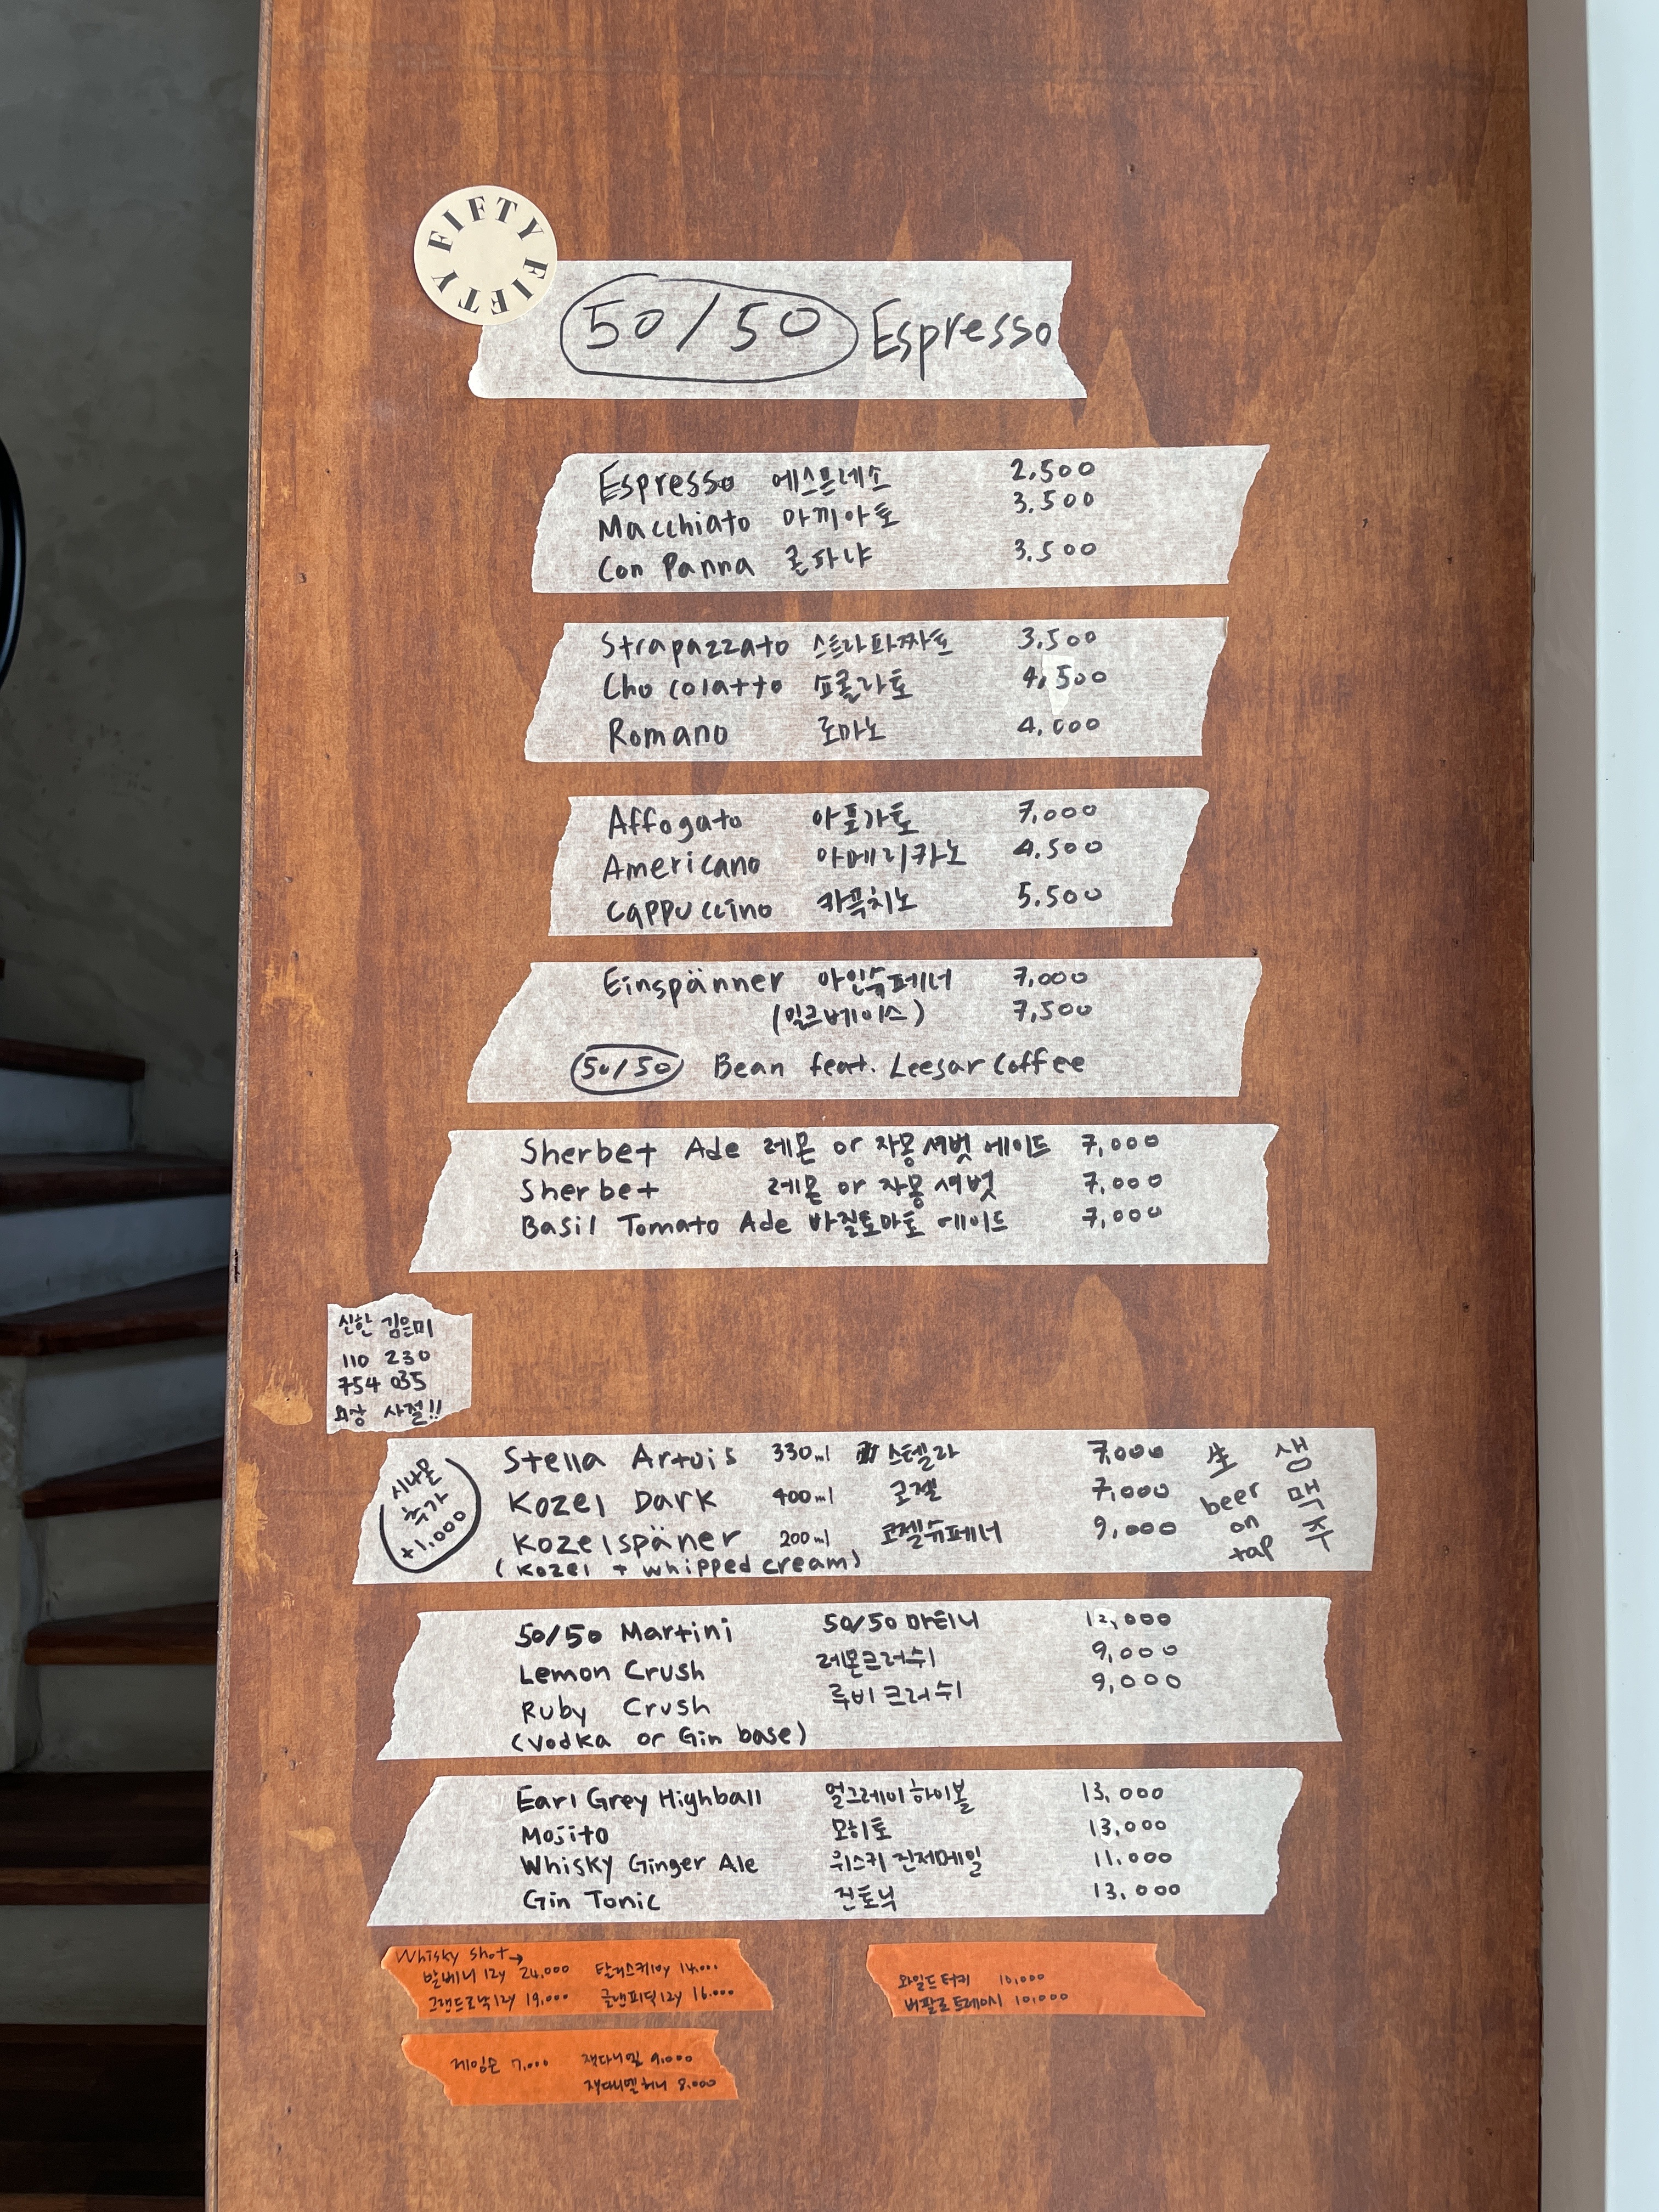 FIFTY FIFTY
50/50 Espresso
Espresso 에스프레소 2,500
Macchiato 마끼아토 3,500
Con Panna 콘파냐 3,500
Strapazzato 스트라파짜토 3,500
Chocolatto 쇼콜라토 4,500
Romano 로마노 4,000
Affogato 아포가토 7,000
Americano 아메리카노 4,500
Cappuccino 카푹치노 5,500
Einspänner 아인슈페너 7,000
(밀크베이스) 7,500
50/50 Bean feat. Leesar Coffee
Sherbet Ade 레몬 or 자몽 셔벗 에이드 7,000
Sherbet 레몬 or 자몽 셔벗 7,000
Basil Tomato Ade 바질토마토 에이드 7,000
신한 김은미
110 230
754 035
외상 사절!!
시나몬
추가
+1,000
Stella Artois 330ml 스텔라 7,000
Kozel Dark 400ml 코젤 7,000
Kozelspäner 200ml 코젤슈페너 9,000
(Kozel + whipped cream)
生 생
beer 맥
on 주
tap
50/50 Martini 50/50 마티니 12,000
Lemon Crush 레몬크러쉬 9,000
Ruby Crush 루비크러쉬 9,000
(Vodka or Gin base)
Earl Grey Highball 얼그레이하이볼 13,000
Mojito 모히토 13,000
Whisky Ginger Ale 위스키 진저에일 11,000
Gin Tonic 진토닉 13,000
Whisky shot→
발베니 12y 24,000 탈리스커10y 14,000
그랜드로낙12y 19,000 글렌피딕12y 16,000
와일드터키 10,000
버팔로트레이시 10,000
제임슨 7,000 잭다니엘 9,000
잭다니엘 허니 8,000